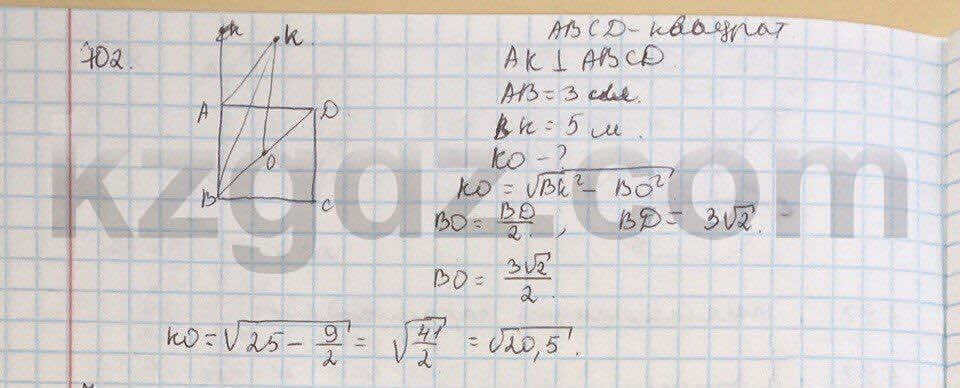 702.
ABCD - квадрат
AK ⊥ ABCD
AB = 3 см.
BK = 5 м.
KO - ?
KO = √(BK² - BO²)
BO = BD/2, BD = 3√2.
BO = 3√2/2.
KO = √(25 - 9/2) = √(41/2) = √20,5.
K K
A D
O
B C
kzgaz.com